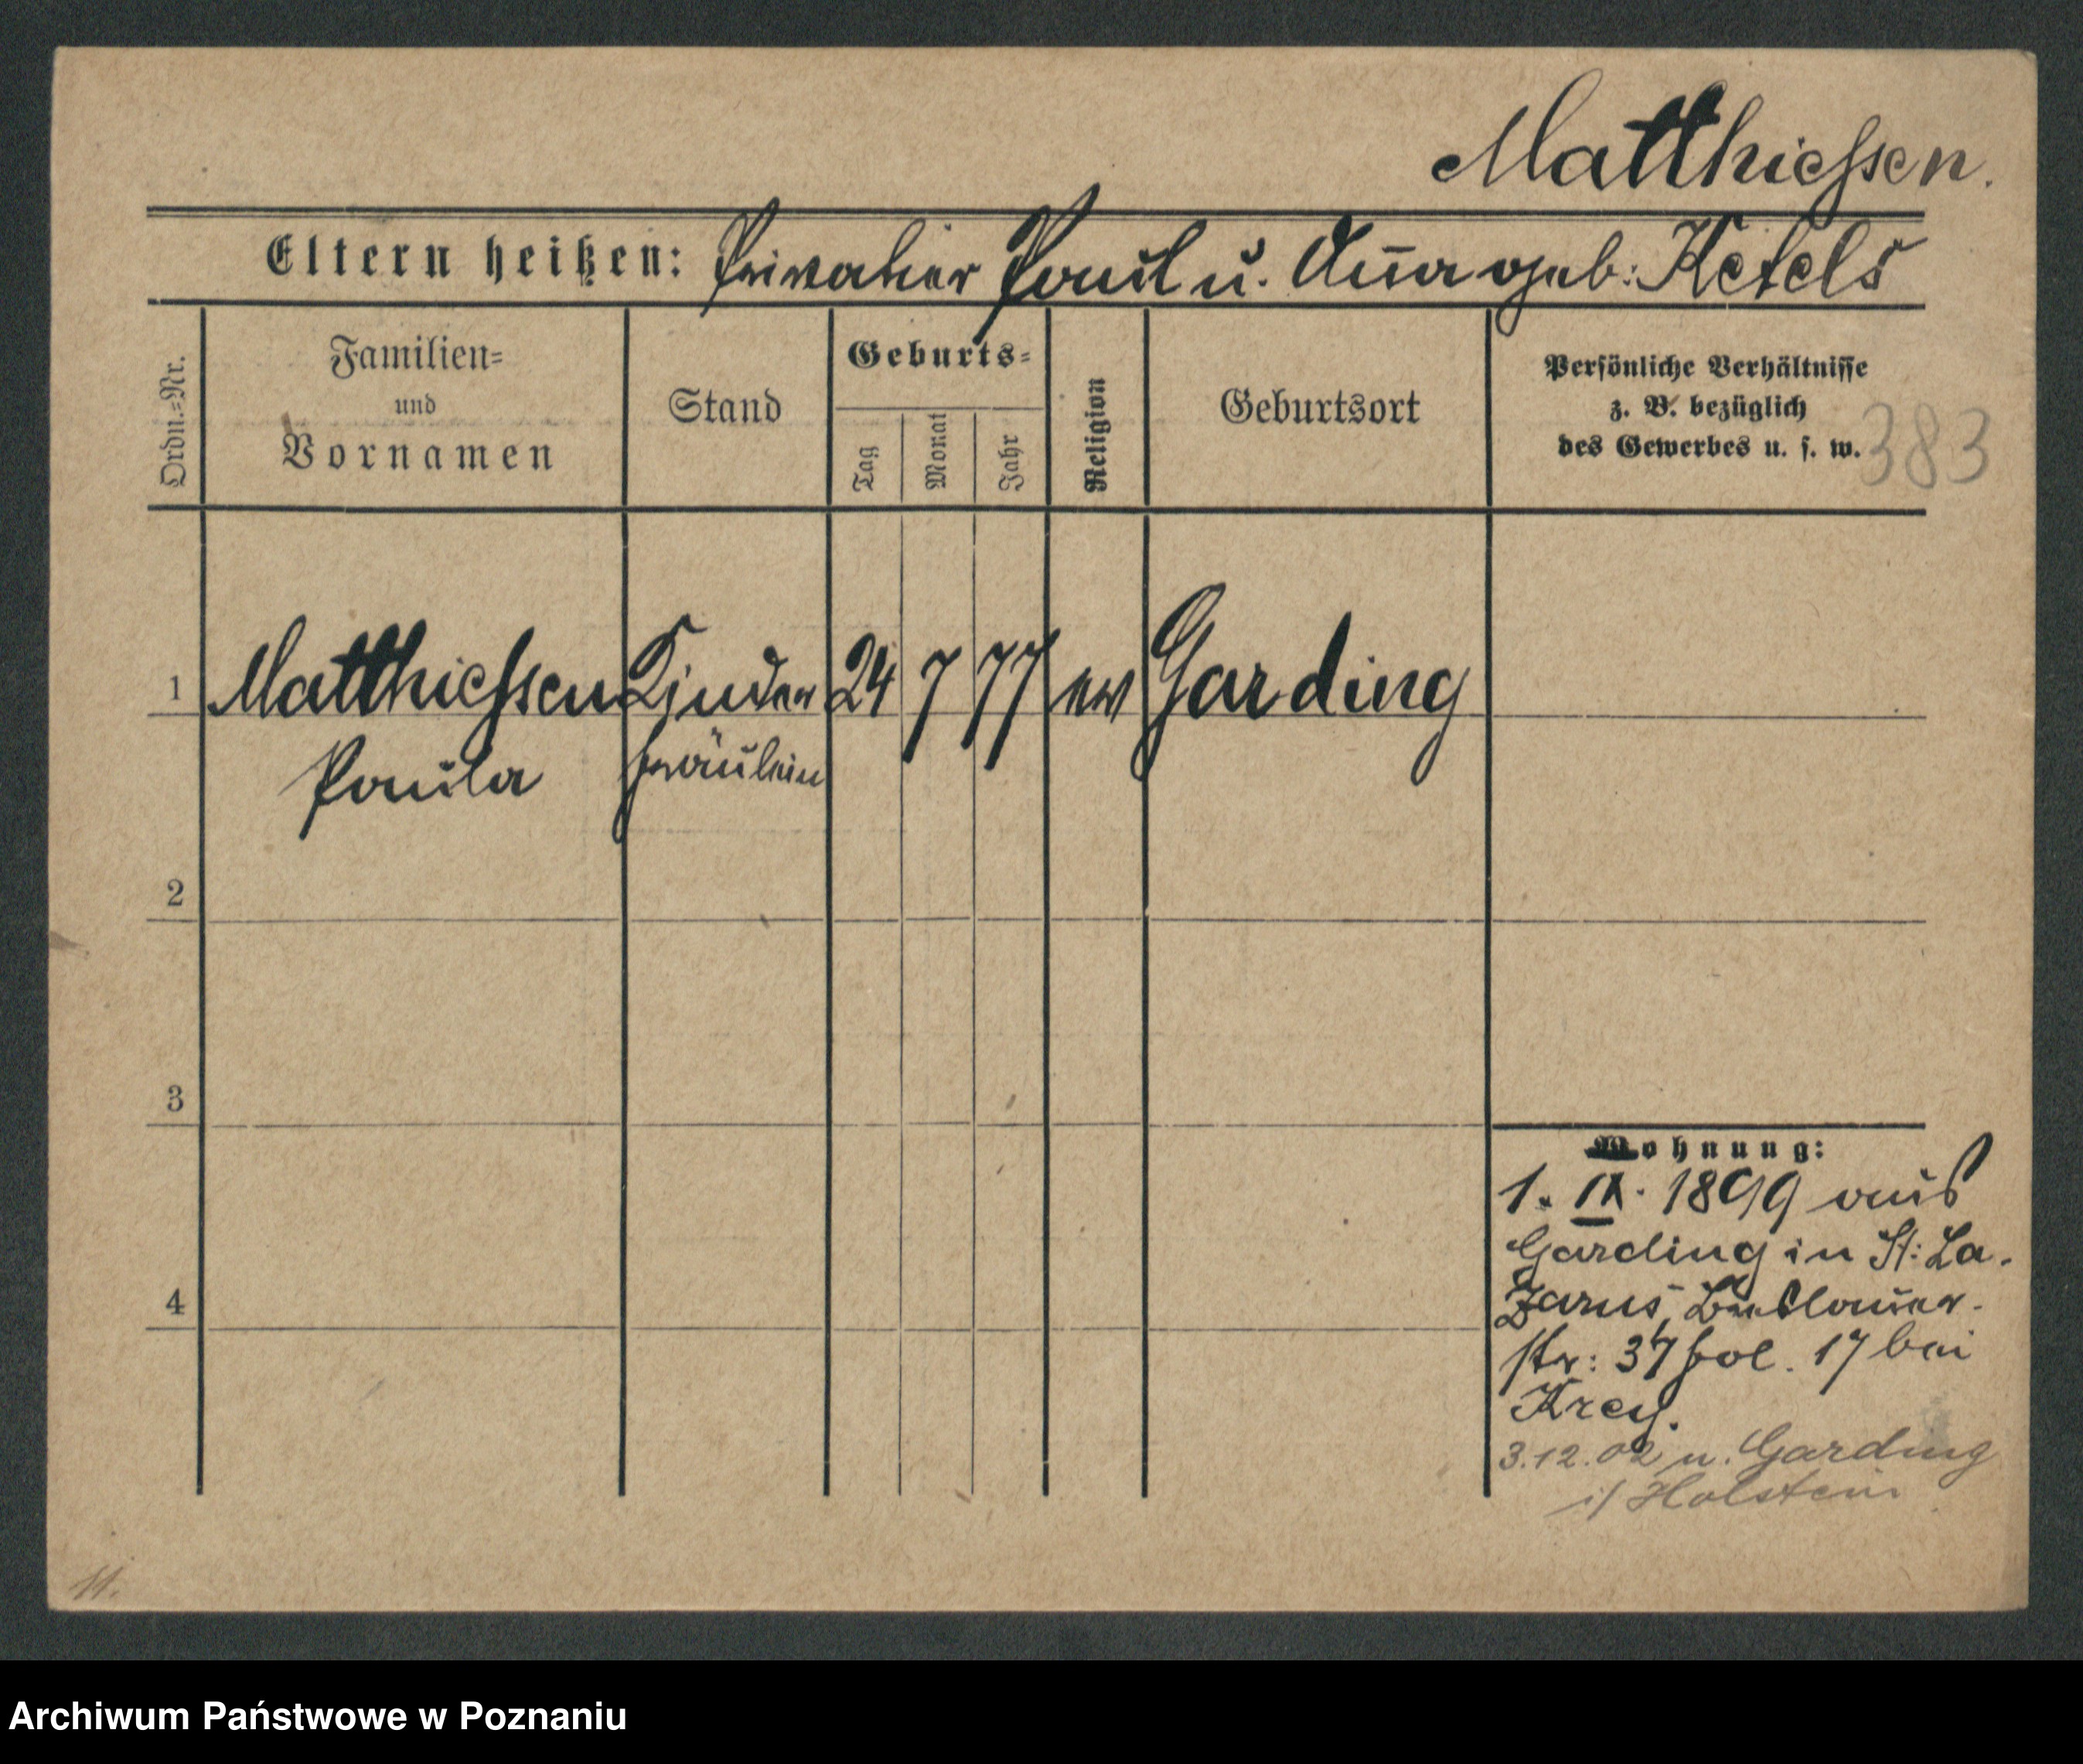 Matthiessen.
Eltern heißen: Privatier Paul u. Anna geb: Ketels
Ordn.=Nr.
Familien=
und
Vornamen
Stand
Geburts=
Tag
Monat
Jahr
Religion
Geburtsort
Persönliche Verhältnisse
z. B. bezüglich
des Gewerbes u. s. w.
383
1 Matthiessen Kinder 24 7 77 ev Garding
Paula fräulein
2
3
4
Wohnung:
1. IX. 1899 aus
Garding in St: La-
zarus,
str: 37 fol. 17 bei
Krey.
3.12.02 n. Garding
i/ Holstein
11.
Archiwum Państwowe w Poznaniu